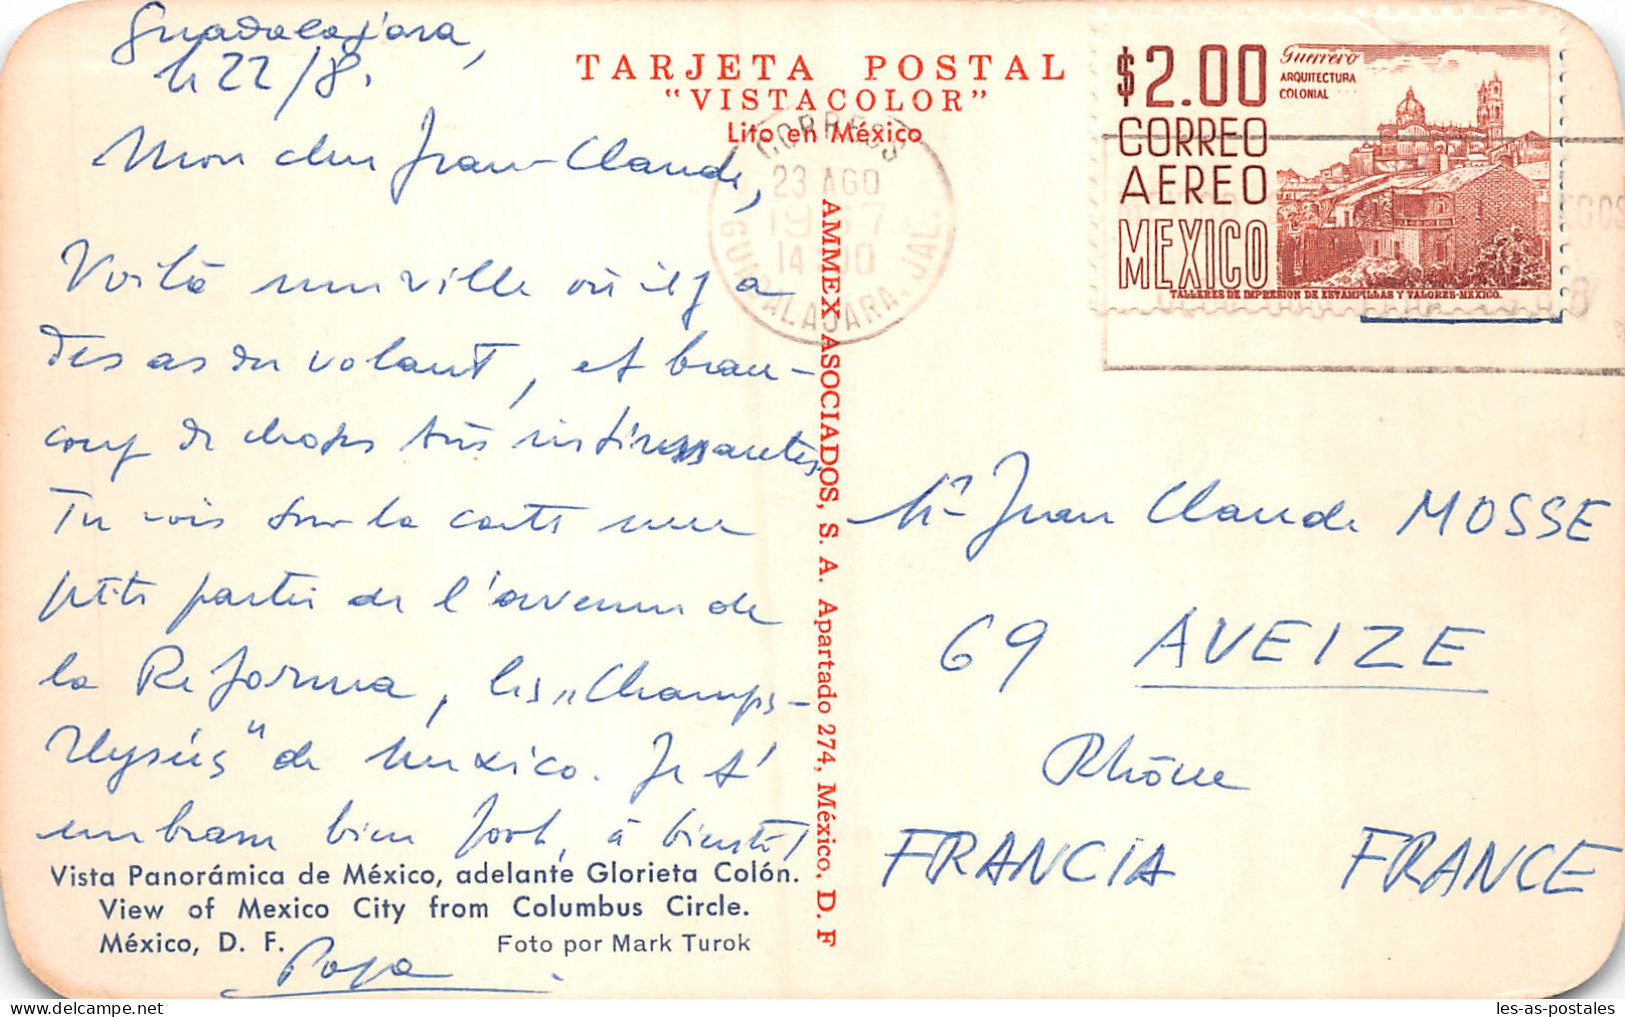 Guadalajara,
le 22/8.
Mon cher Jean-Claude,
Voilà une ville où il y a
des as du volant, et beau-
coup de choses très intéressantes.
Tu vois sur la carte une
petite partie de l'avenue de
la Reforma, les „Champs-
Elysées" de Mexico. Je t'
embrasse bien fort, à bientôt
Papa
Vista Panorámica de México, adelante Glorieta Colón.
View of Mexico City from Columbus Circle.
México, D. F. Foto por Mark Turok
TARJETA POSTAL
"VISTACOLOR"
Lito en México
AMMEX ASOCIADOS, S. A. Apartado 274, México, D. F
CORREOS
23 AGO
1967
14 00
GUADALAJARA, JAL.
$2.00
CORREO
AEREO
MEXICO
Guerrero
ARQUITECTURA
COLONIAL
TALLERES DE IMPRESION DE ESTAMPILLAS Y VALORES-MEXICO.
Mr Jean Claude MOSSE
69 AVEIZE
Rhône
FRANCIA FRANCE
les-as-postales